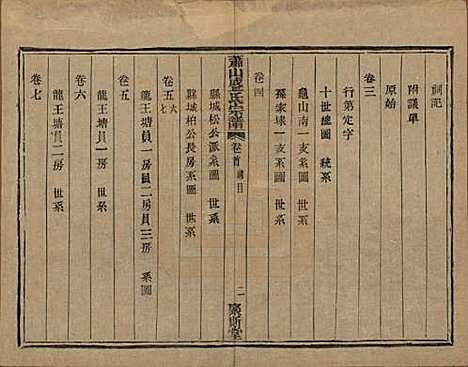 祠記
附議單
原始
卷三
行第定字
十世總圖 統系
龜山南一支系圖
孫家埭一支系圖 世系
卷四
蕭山盛氏宗譜 卷首 總目 二
縣城松公派系圖 世系
縣城柏公長房系圖 世系
卷五 六
龍王塘員一房員二房員三房 系圖
卷五
龍王塘員一房 世系
卷六
龍王塘員二房 世系
卷七